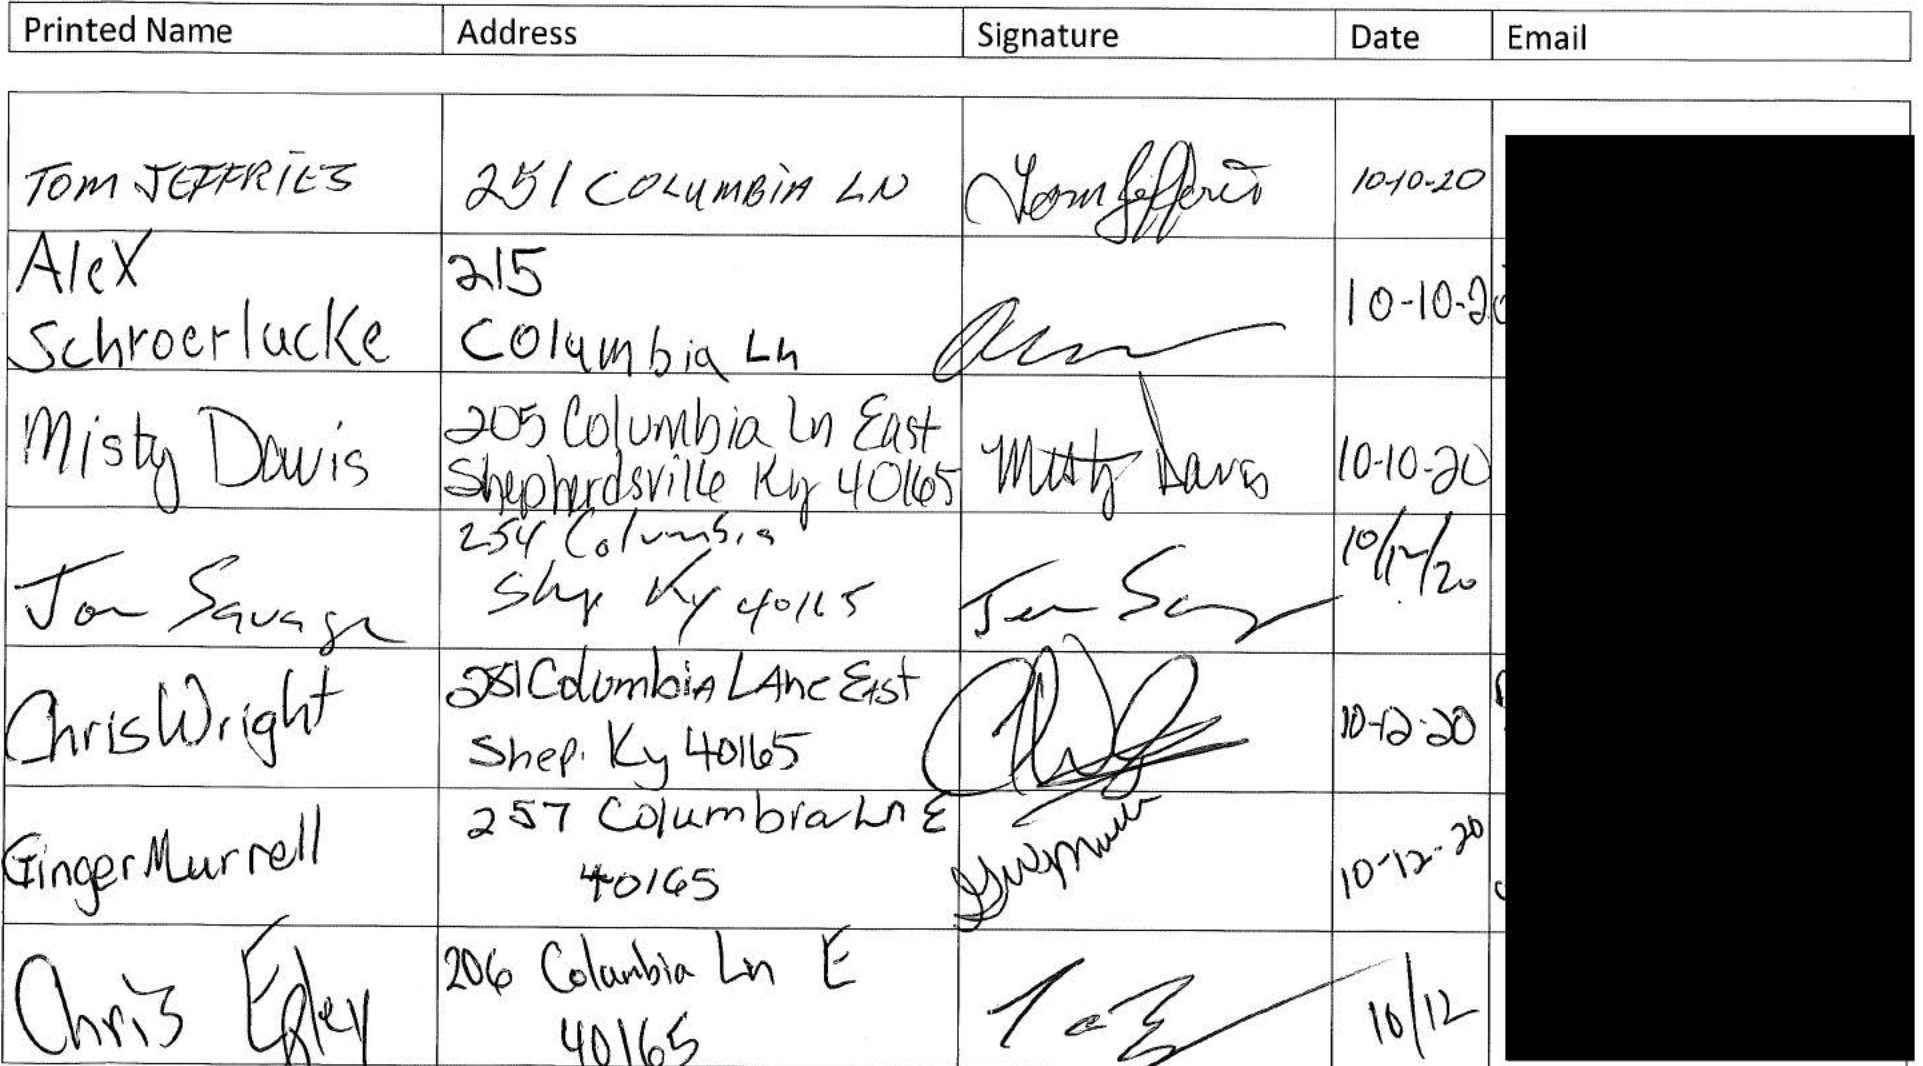 Printed Name Address Signature Date Email
TOM JEFFRIES 251 COLUMBIA LN Tom Jefferies 10-10-20
Alex
Schroerlucke
215
Columbia Ln
10-10-20
Misty Davis
205 Columbia Ln East
Shepherdsville Ky 40165
Misty Davis 10-10-20
Jon Savage
254 Columbia
Shep Ky 40165
10/12/20
Chris Wright
251 Columbia LAne East
Shep. Ky 40165
10-12-20
Ginger Murrell
257 Columbia Ln E
40165
10-12-20
Chris
206 Columbia Ln E
40165
10/12